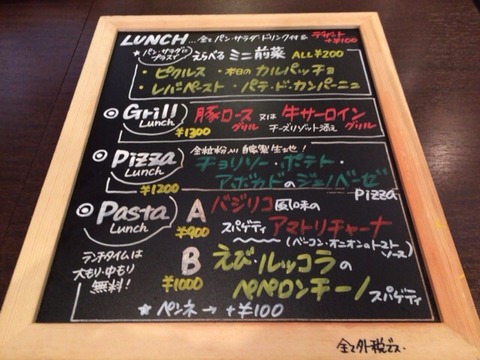 LUNCH …全てパン・サラダ ドリンク付き デザート+¥100
パン・サラダにプラスで えらべる ミニ前菜 ALL¥200
・ピクルス ・本日のカルパッチョ
・レバーペースト ・パテ・ド・カンパーニュ
◎ Grill Lunch ¥1300
豚ロースグリル 又は 牛サーロイングリル
チーズリゾット添え
◎ Pizza Lunch ¥1200
全粒粉入り自家製生地!
チョリソー・ポテト・
アボカドのジェノベーゼ
Pizza
◎ Pasta Lunch
A ¥900
バジリコ風味の
スパゲティ アマトリチャーナ
(ベーコン・オニオンのトマトソース)
ランチタイムは
大もり・中もり
無料!
B ¥1000
えび・ルッコラの
ペペロンチーノ スパゲティ
★ペンネ→+¥100
全て外税です.